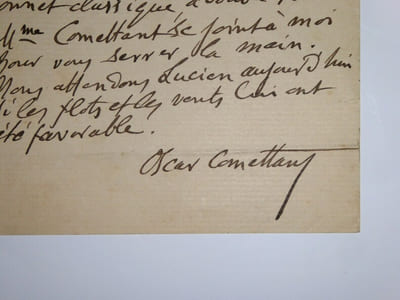 bonnet classique à
Mme Comettant se joint à moi
pour vous serrer la main.
Nous attendons Lucien aujourd'hui
si les flots et les vents lui ont
été favorable.
Oscar Comettant